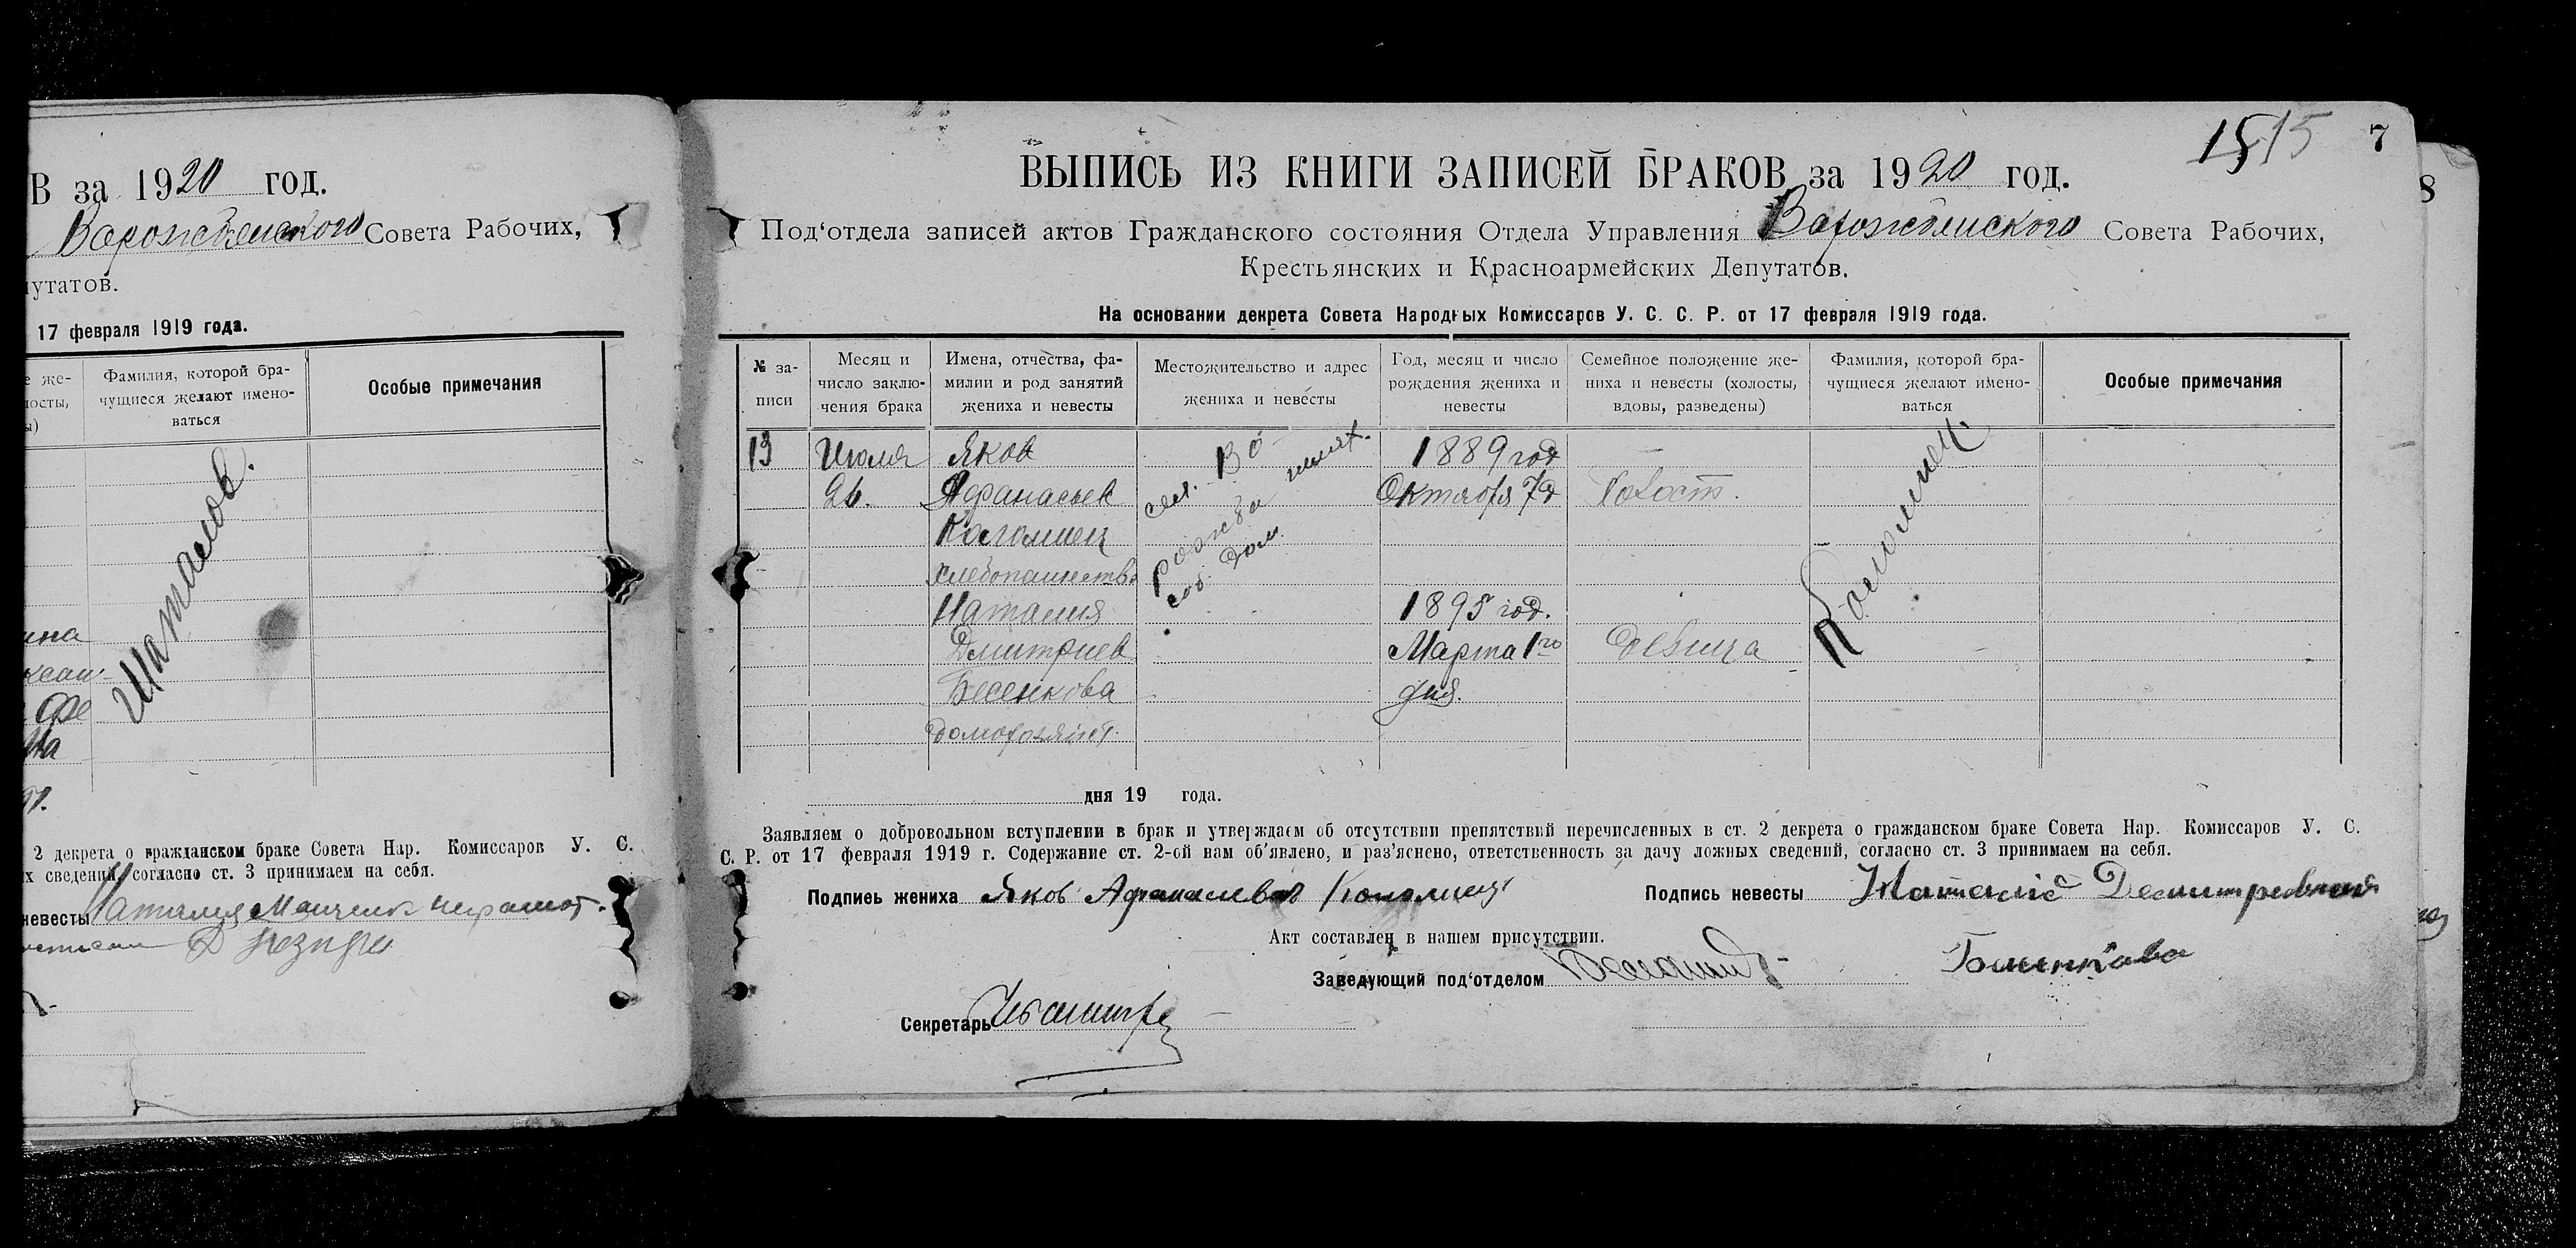 В за 1920 год.
Ворожбянского Совета Рабочих,
путатов.
17 февраля 1919 года.
е же-
лосты,
ы)
Фамилия, которой бра-
чущиеся желают имено-
ваться
Особые примечания
Шаталов.
ина
ксан-
Фе
на
2 декрета о гражданском браке Совета Нар. Комиссаров У. С.
х сведений, согласно ст. 3 принимаем на себя.
невесты Наталия
15 15 7
8
ВЫПИСЬ ИЗ КНИГИ ЗАПИСЕЙ БРАКОВ за 1920 год.
Под'отдела записей актов Гражданского состояния Отдела Управления Ворожбянского Совета Рабочих,
Крестьянских и Красноармейских Депутатов.
На основании декрета Совета Народных Комиссаров У. С. С. Р. от 17 февраля 1919 года.
№ за-
писи
Месяц и
число заклю-
чения брака
Имена, отчества, фа-
милии и род занятий
жениха и невесты
Местожительство и адрес
жениха и невесты
Год, месяц и число
рождения жениха и
невесты
Семейное положение же-
ниха и невесты (холосты,
вдовы, разведены)
Фамилия, которой бра-
чущиеся желают имено-
ваться
Особые примечания
13 Июля Яков 1889 год
26. Афанасьев Октября 7д Холост.
Коломиец
хлебопашество
соб. дом.
Коломиец.
Наталия 1895 год.
Дмитриев Марта 1го девица
Бесенкова дня.
домохозяйст.
дня 19 года.
Заявляем о добровольном вступлении в брак и утверждаем об отсутствии препятствий перечисленных в ст. 2 декрета о гражданском браке Совета Нар. Комиссаров У. С.
С. Р. от 17 февраля 1919 г. Содержание ст. 2-ой нам об'явлено, и раз'яснено, ответственность за дачу ложных сведений, согласно ст. 3 принимаем на себя.
Подпись жениха Яков Афанасиевов Коломиец Подпись невесты Наталиє Демитревная
Акт составлен в нашем присутствии.
Заведующий под'отделом
Секретарь